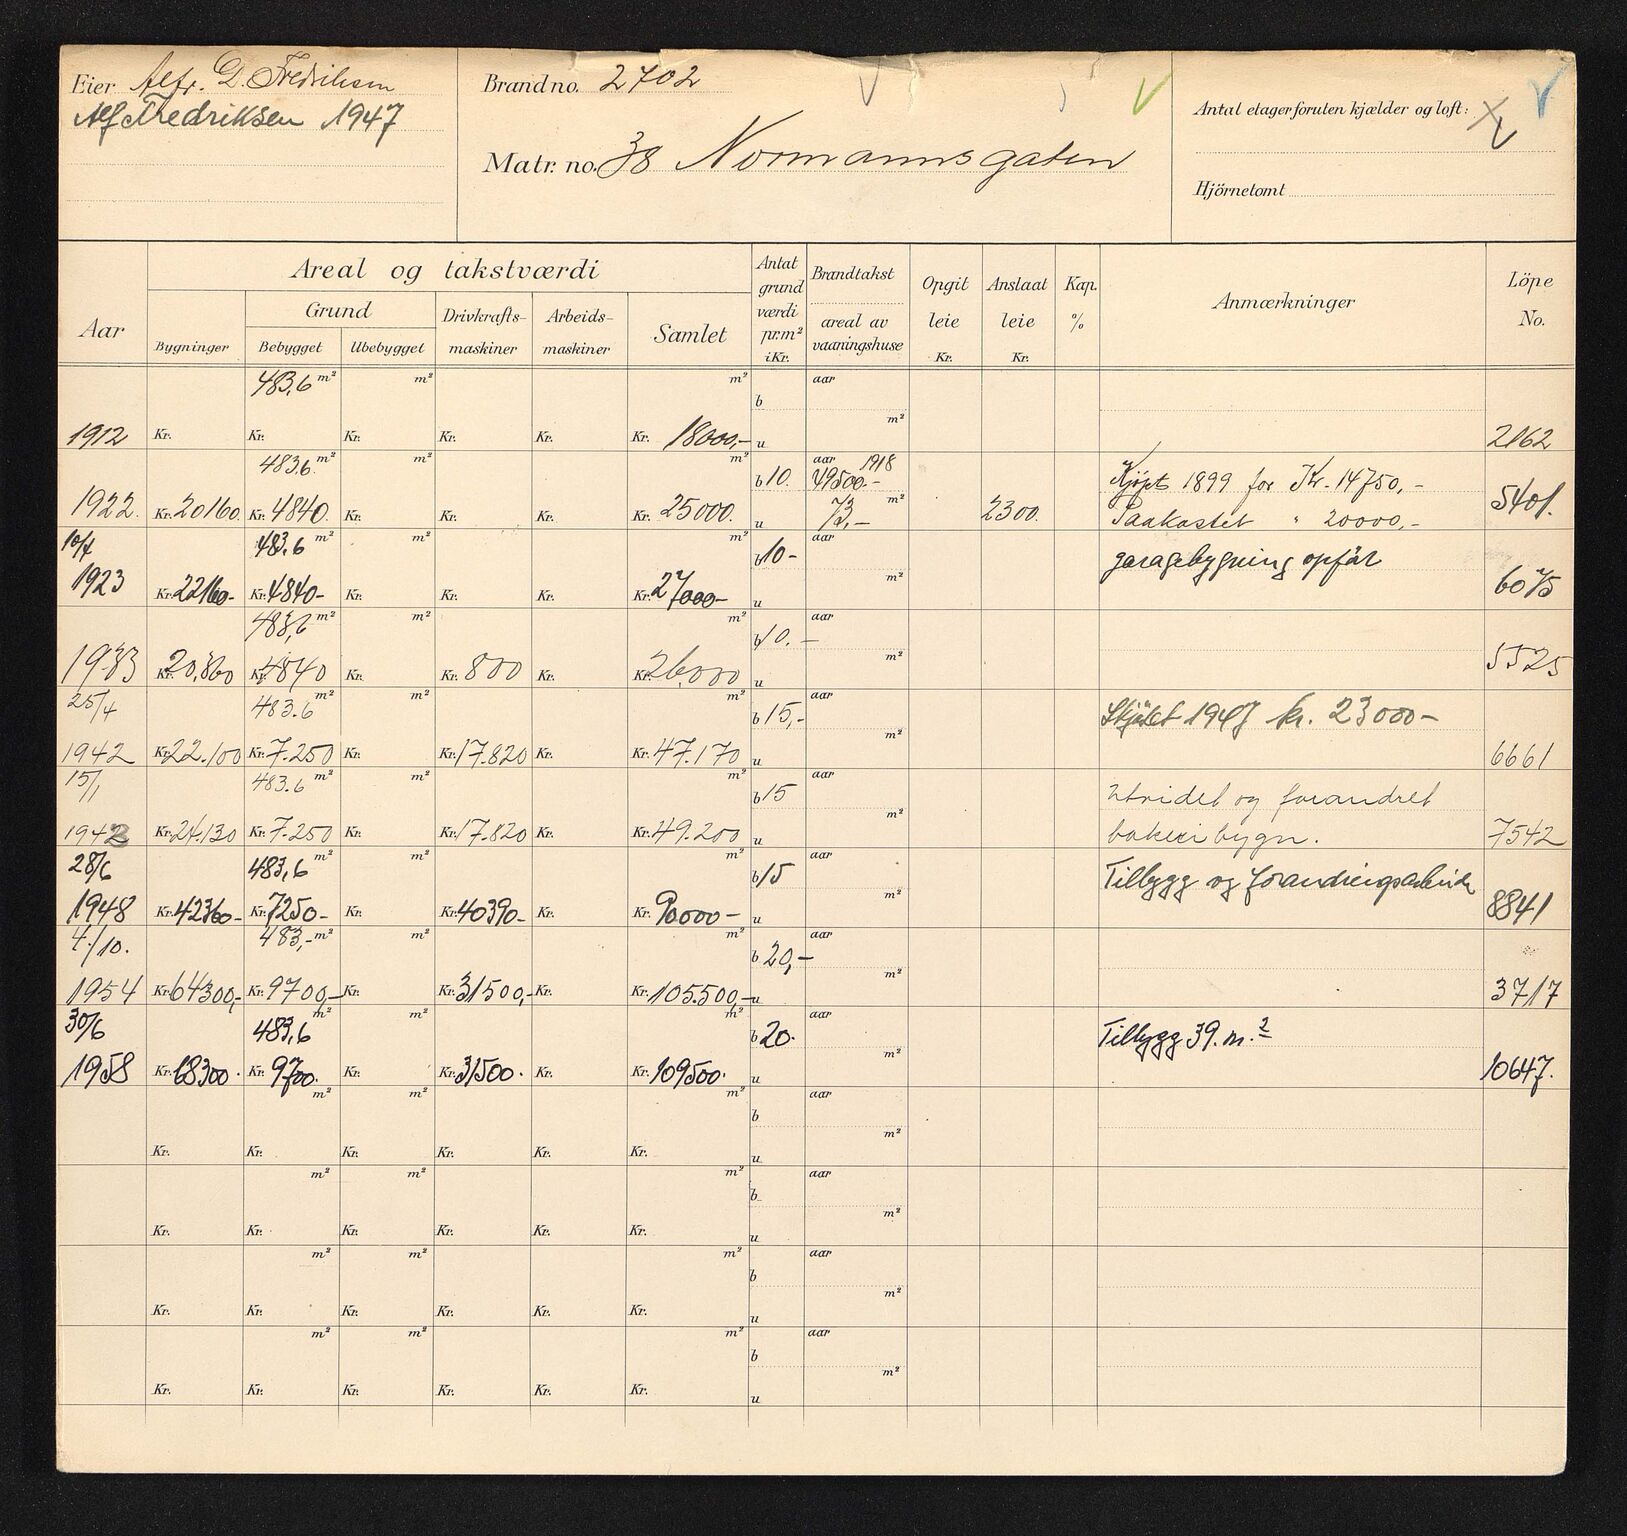 Eier Alfr. D. Fredriksen
Alf Fredriksen 1947
Brand no. 2702
Matr. no. 38 Normannsgaten
Antal etager foruten kjælder og loft:
Hjörnetomt
Areal og takstværdi
Aar
Bygninger
Grund
Bebygget
Ubebygget
Drivkrafts-
maskiner
Arbeids-
maskiner
Samlet
Antat
grund
værdi
pr. m²
i Kr.
Brandtakst
areal av
vaaningshuse
Opgit
leie
Kr.
Anslaat
leie
Kr.
Kap.
%
Anmærkninger
Löpe
No.
483,6 m² m² m² aar
b
m²
1912 Kr. Kr. Kr. Kr. Kr. Kr. 18000,- u 2162
483.6 m² m² m² b 10. aar 1918
49500.- Kjøpt 1899 for Kr. 14750,-
1922. Kr. 20160. Kr. 4840. Kr. Kr. Kr. Kr. 25000. u 73,- m² 2300. Paakostet " 20000,- 5401.
10/4 483,6 m² m² m² b 10- aar garagebygning opført
m²
1923 Kr. 22160- Kr. 4840- Kr. Kr. Kr. Kr. 27000- u 6075
483,6 m² m² m² b 10.- aar
m²
1933 Kr. 20,860 Kr. 4840 Kr. Kr. 800 Kr. Kr. 26000 u 5525
25/4 483.6 m² m² m² b 15,- aar Skjötet 1947 kr. 23000-
m²
1942 Kr. 22.100 Kr. 7.250 Kr. Kr. 17.820 Kr. Kr. 47.170 u 6661
15/1 483.6 m² m² m² b 15 aar Utvidet og forandret
m²
Kr. 24.130 Kr. 7.250 Kr. Kr. 17.820 Kr. Kr. 49.200 u bakeribygn. 7542
28/6 483,6 m² m² m² b 15 aar Tilbygg og forandringsarbeide
m²
1948 Kr. 42360- Kr. 7250- Kr. Kr. 40390- Kr. Kr. 90000- u 8841
4./10. 483,- m² m² m² b 20,- aar
m²
1954 Kr. 64300,- Kr. 9700,- Kr. Kr. 31500,- Kr. Kr. 105.500,- u 3717
30/6 483,6 m² m² m² b 20. aar Tilbygg 39. m.²
m²
1958 Kr. 68300. Kr. 9700. Kr. Kr. 31500. Kr. Kr. 109500. u 10647.
m² m² m² aar
b
m²
Kr. Kr. Kr. Kr. Kr. Kr. u
m² m² m² aar
b
m²
Kr. Kr. Kr. Kr. Kr. Kr. u
m² m² m² aar
b
m²
Kr. Kr. Kr. Kr. Kr. Kr. u
m² m² m² aar
b
m²
Kr. Kr. Kr. Kr. Kr. Kr. u